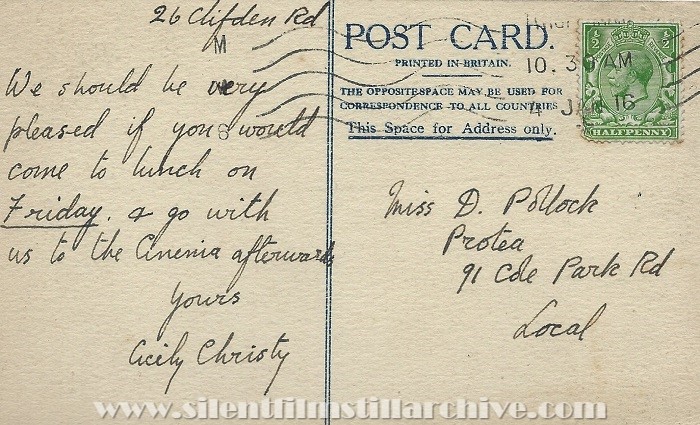 26 Clifden Rd
We should be very
pleased if you would
come to lunch on
Friday. & go with
us to the Cinema afterwards
Yours
Cicily Christy
POST CARD.
PRINTED IN BRITAIN.
THE OPPOSITE SPACE MAY BE USED FOR
CORRESPONDENCE TO ALL COUNTRIES
This Space for Address only.
M
6
10. 30 AM
4 JAN 16
½ ½
HALFPENNY
Miss D. Pollock
Protea
91 Cole Park Rd
Local
www.silentfilmstillarchive.com